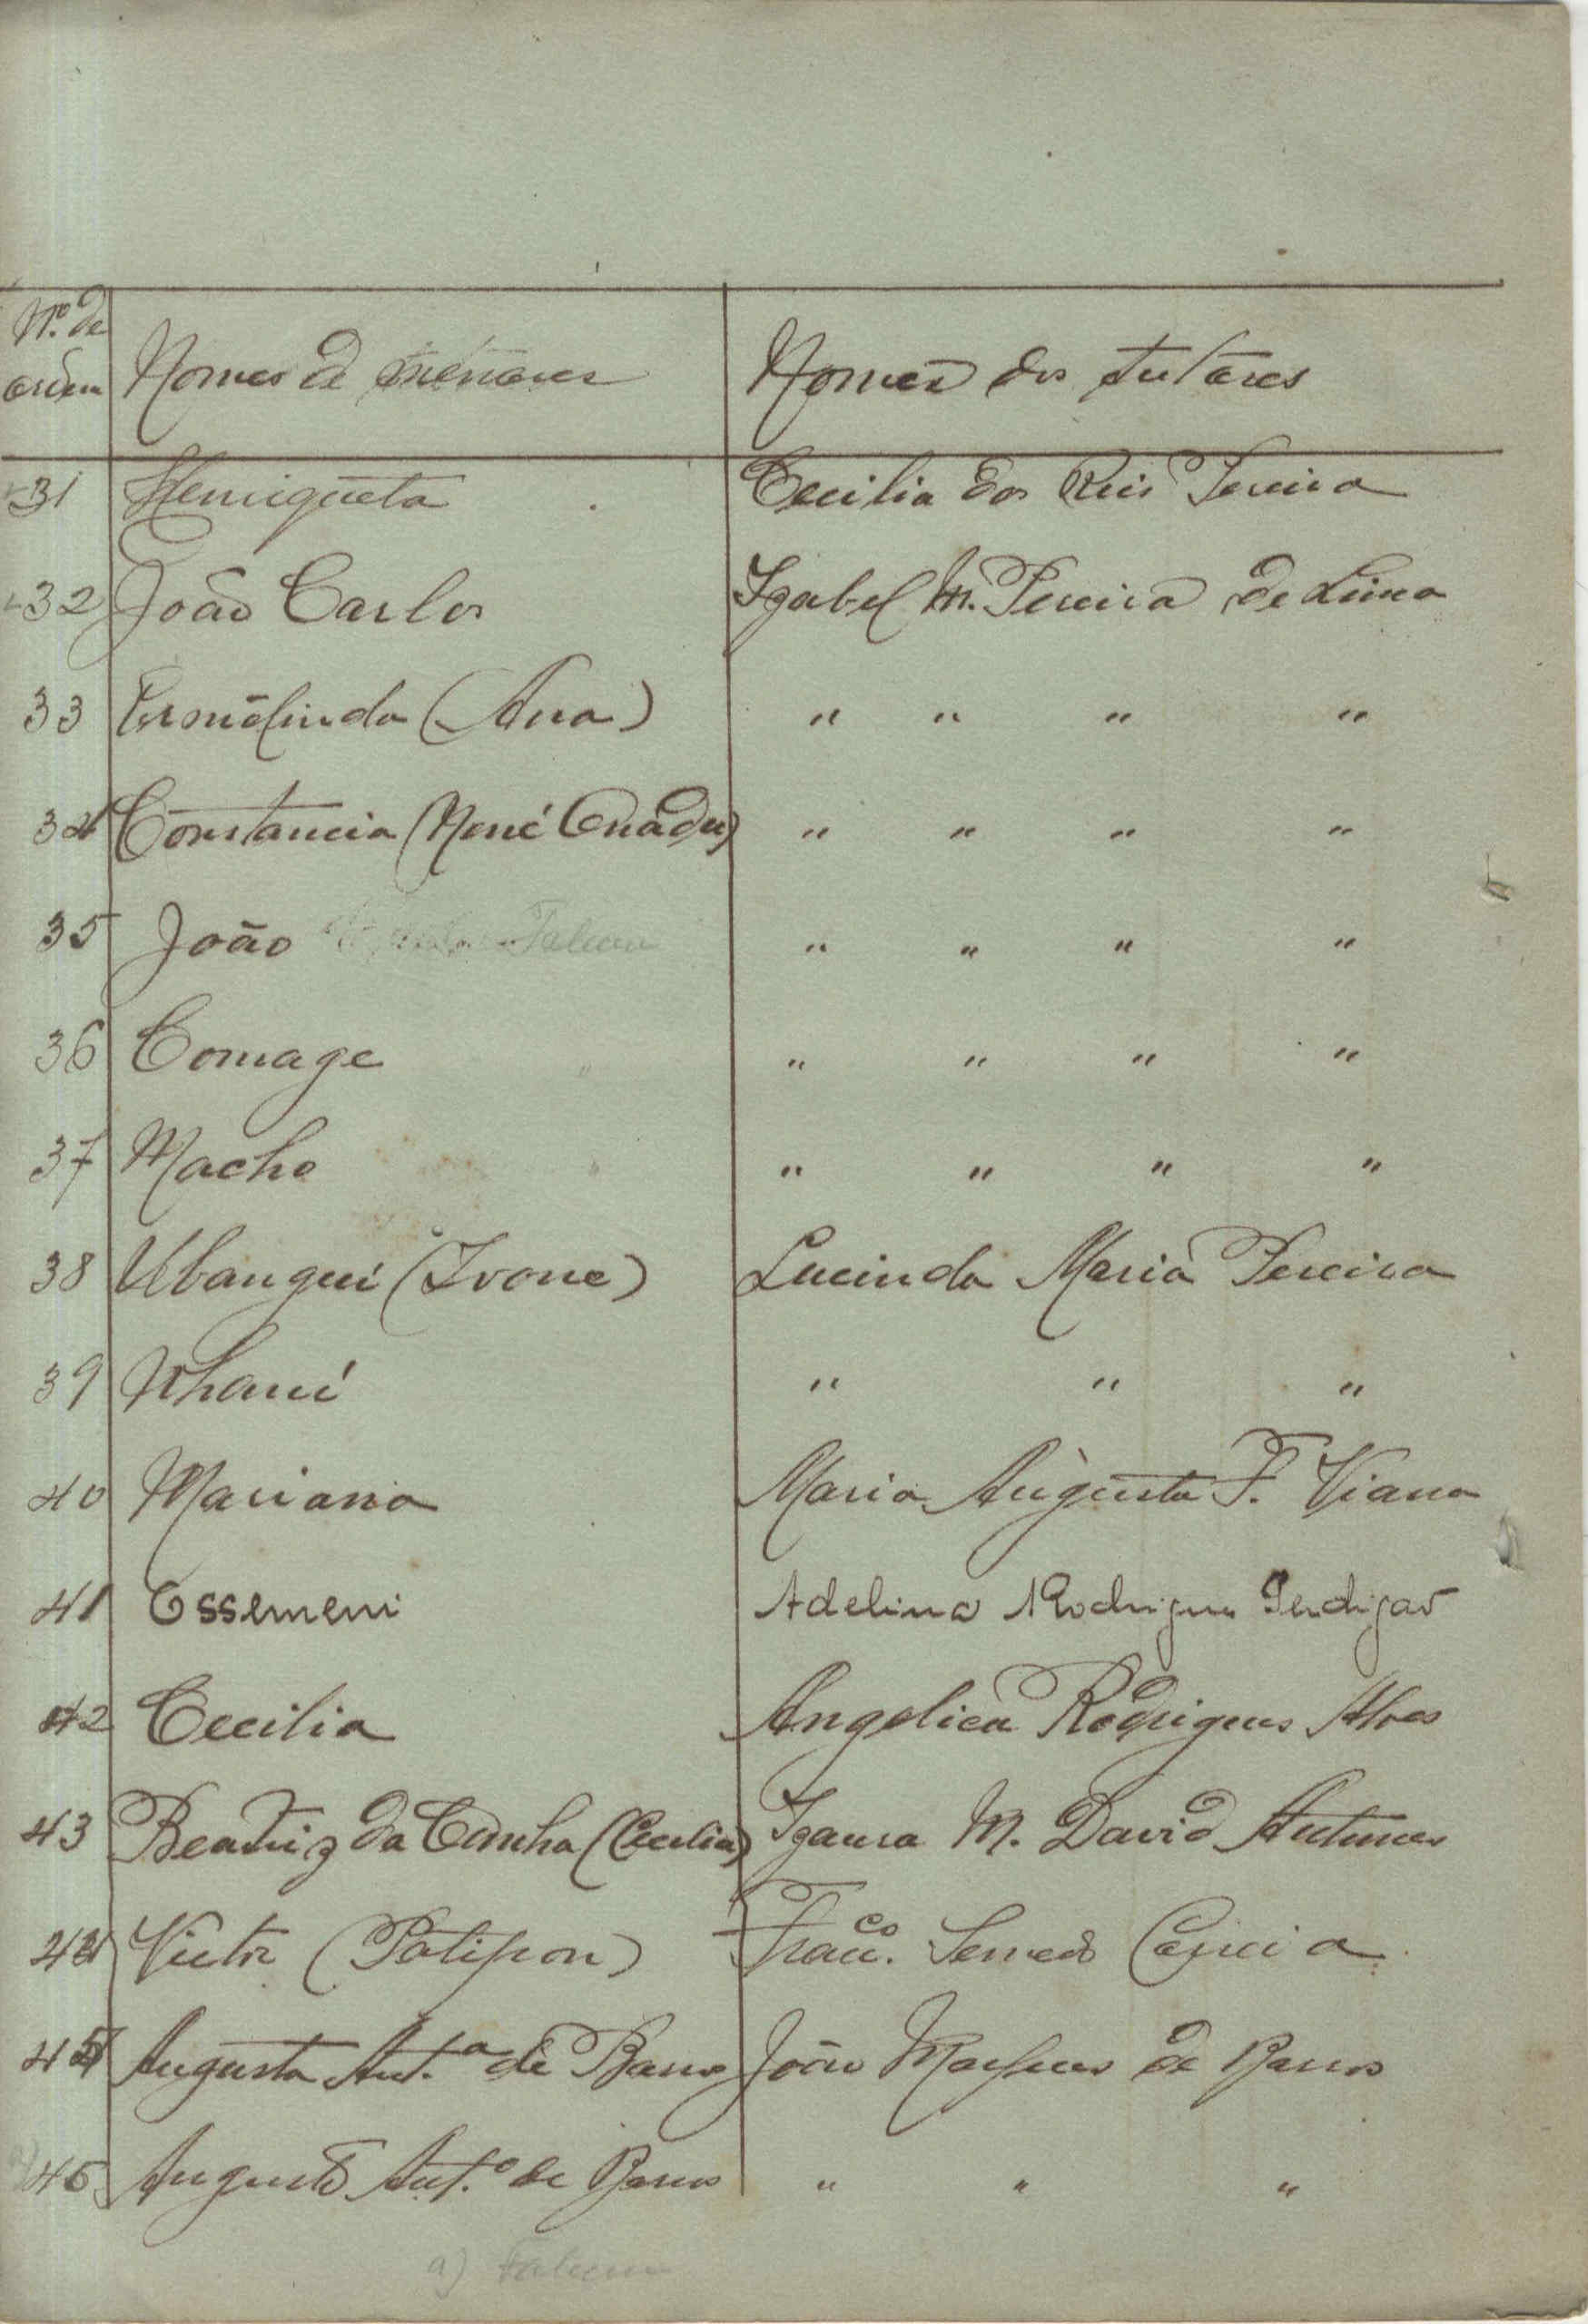 Nº. de ordem Nomes de menores Nomes dos tutores
31 Henriqueta Cecilia dos Reis Pereira
32 João Carlos Izabel M. Pereira de Lima
33 Ermelinda (Ana) " " " "
34 Constancia (Nené " " " "
35 João Faleceu " " " "
36 Comage " " " "
37 Macho " " " "
38 Ubangui (Ivone) Lucinda Maria Pereira
39 Nhané " " "
40 Mariana Maria Augusta F. Viana
41 Essemeni Adelina Rodrigues Perdigão
42 Cecilia Angelica Rodrigues Alves
43 Beatriz da Cunha (Cecilia) Izaura M. David Antunes
44 Victor Franco. Semedo Correia
45 Augusta Ant.a de Barros João Marques de Barros
46 Augusto Ant.o de Barros " " "
a) Faleceu